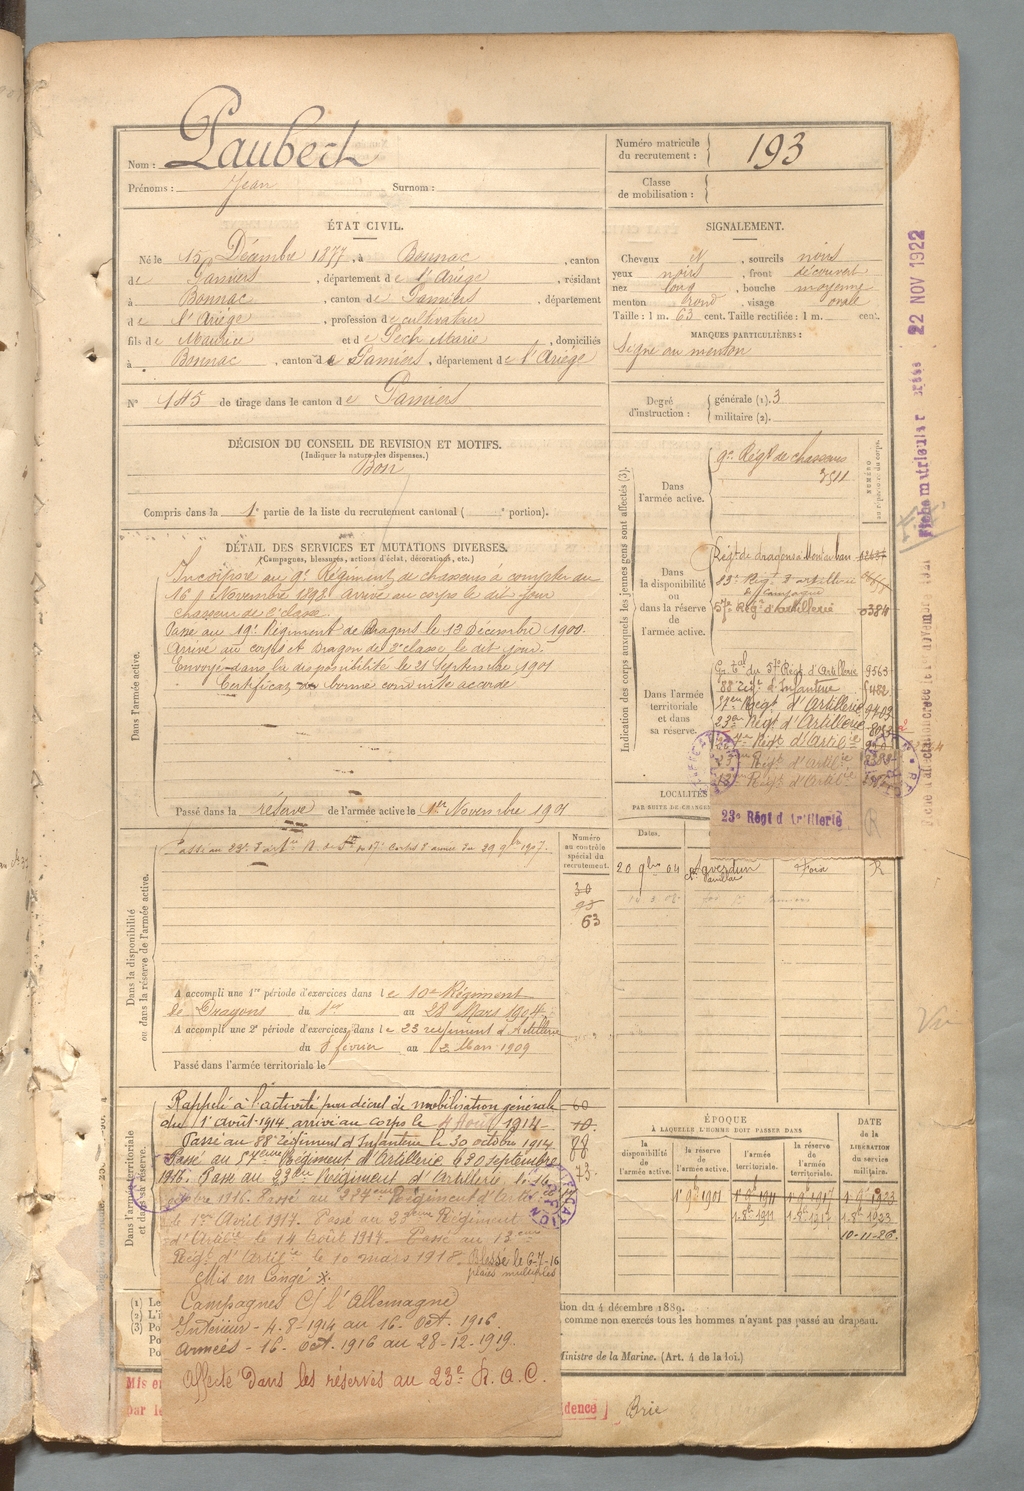 Nom : Laubech
Prénoms : Jean Surnom :
Numéro matricule du recrutement : 193
Classe de mobilisation :
ÉTAT CIVIL.
Né le 15 Décembre 1877, à Bonnac, canton
de Pamiers, département de l'Ariège, résidant
à Bonnac, canton de Pamiers, département
de l'Ariège, profession de cultivateur
fils de Maurice et de Pech Marie, domiciliés
à Bonnac, canton de Pamiers, département de l'Ariège
N° 145 de tirage dans le canton de Pamiers
SIGNALEMENT.
Cheveux N, sourcils noirs
yeux noirs, front découvert
nez long, bouche moyenne
menton rond, visage ovale
Taille : 1 m. 63 cent. Taille rectifiée : 1 m. cent.
MARQUES PARTICULIÈRES :
Signe au menton
Degré d'instruction : générale (1). 3
militaire (2).
DÉCISION DU CONSEIL DE REVISION ET MOTIFS.
(Indiquer la nature des dispenses.)
Bon
Compris dans la 1e partie de la liste du recrutement cantonal ( portion).
DÉTAIL DES SERVICES ET MUTATIONS DIVERSES.
(Campagnes, blessures, actions d'éclat, décorations, etc.)
Dans l'armée active.
Incorporé au 9e Régiment de chasseurs à compter du
16 Novembre 1898. Arrivé au corps le dit jour
chasseur de 2e classe.
Passé au 19e Régiment de Dragons le 12 Décembre 1900.
Arrivé au corps et Dragon de 2e classe le dit jour.
Envoyé dans la disponibilité le 21 Septembre 1901
Certificat de bonne conduite accordé
Passé dans la réserve de l'armée active le 1er Novembre 1901
Indication des corps auxquels les jeunes gens sont affectés (3).
NUMÉRO
Dans l'armée active.
9e Régt de chasseurs
3511
Dans la disponibilité ou dans la réserve de l'armée active.
Régt de dragons à Montauban
23e Régt d'artillerie
de campagne
57e Régt d'artillerie 0384
Dans l'armée territoriale et dans sa réserve.
Gr. tal du 57e Régt d'Artillerie 9563
88e régt d'Infanterie 1482
57eme Régt d'Artillerie 9409
23e Régt d'Artillerie
Régt d'Artie
Régt d'Artie
13eme Régt d'Artie
23e Régt d'artillerie
R
Fiche matriculaire 22 NOV 1922
LOCALITÉS
PAR SUITE DE CHANGE
Dates.
20 9bre 04 Saverdun Foix R
Dans la disponibilité ou dans la réserve de l'armée active.
Numéro au contrôle spécial du recrutement.
30
93
63
Passé au 23e d'artie 17e corps d'armée du 29 9bre 1907.
A accompli une 1re période d'exercices dans le 10e Régiment
de Dragons du 1er au 28 Mars 1904
A accompli une 2e période d'exercices dans le 23 régiment d'Artillerie
du 8 février au 2 Mars 1909
Passé dans l'armée territoriale le
Vu
Dans l'armée territoriale et dans sa réserve.
Rappelé à l'activité par décret de mobilisation générale
du 1er août 1914 arrivé au corps le 4 Août 1914
Passé au 88e régiment d'Infanterie le 30 octobre 1914
Passé au 57eme Régiment d'Artillerie le 30 septembre
1916. Passé au 23e Régiment d'Artillerie le 16
octobre 1916. Passé au Régiment d'Artie
le 1er Avril 1917. Passé au 23eme Régiment
d'Artie le 14 Août 1917. Passé au 13eme
Régt d'Artie le 10 mars 1918. Blessé le 6-7-16
plaies multiples
Mis en congé
Campagnes C/ l'Allemagne
Intérieur - 4-8-1914 au 16 Oct. 1916.
Armées - 16 Oct. 1916 au 28-12-1919.
Affecté dans les réserves au 23e R.A.C.
60
10
88
73
ÉPOQUE
À LAQUELLE L'HOMME DOIT PASSER DANS
la disponibilité de l'armée active.
la réserve de l'armée active.
l'armée territoriale.
la réserve de l'armée territoriale.
DATE de la LIBÉRATION du service militaire.
1er 9bre 1901 1er 9bre 1911 1er 9bre 1917 1er 9bre 1923
1.8bre 1911 1.8bre 1917 1.8bre 1923
10-11-26.
(1) Le
(2) L'i
(3) Po
Po
Po
tion du 4 décembre 1889.
comme non exercés tous les hommes n'ayant pas passé au drapeau.
Ministre de la Marine. (Art. 4 de la loi.)
Mis en
par le
idence
Brie